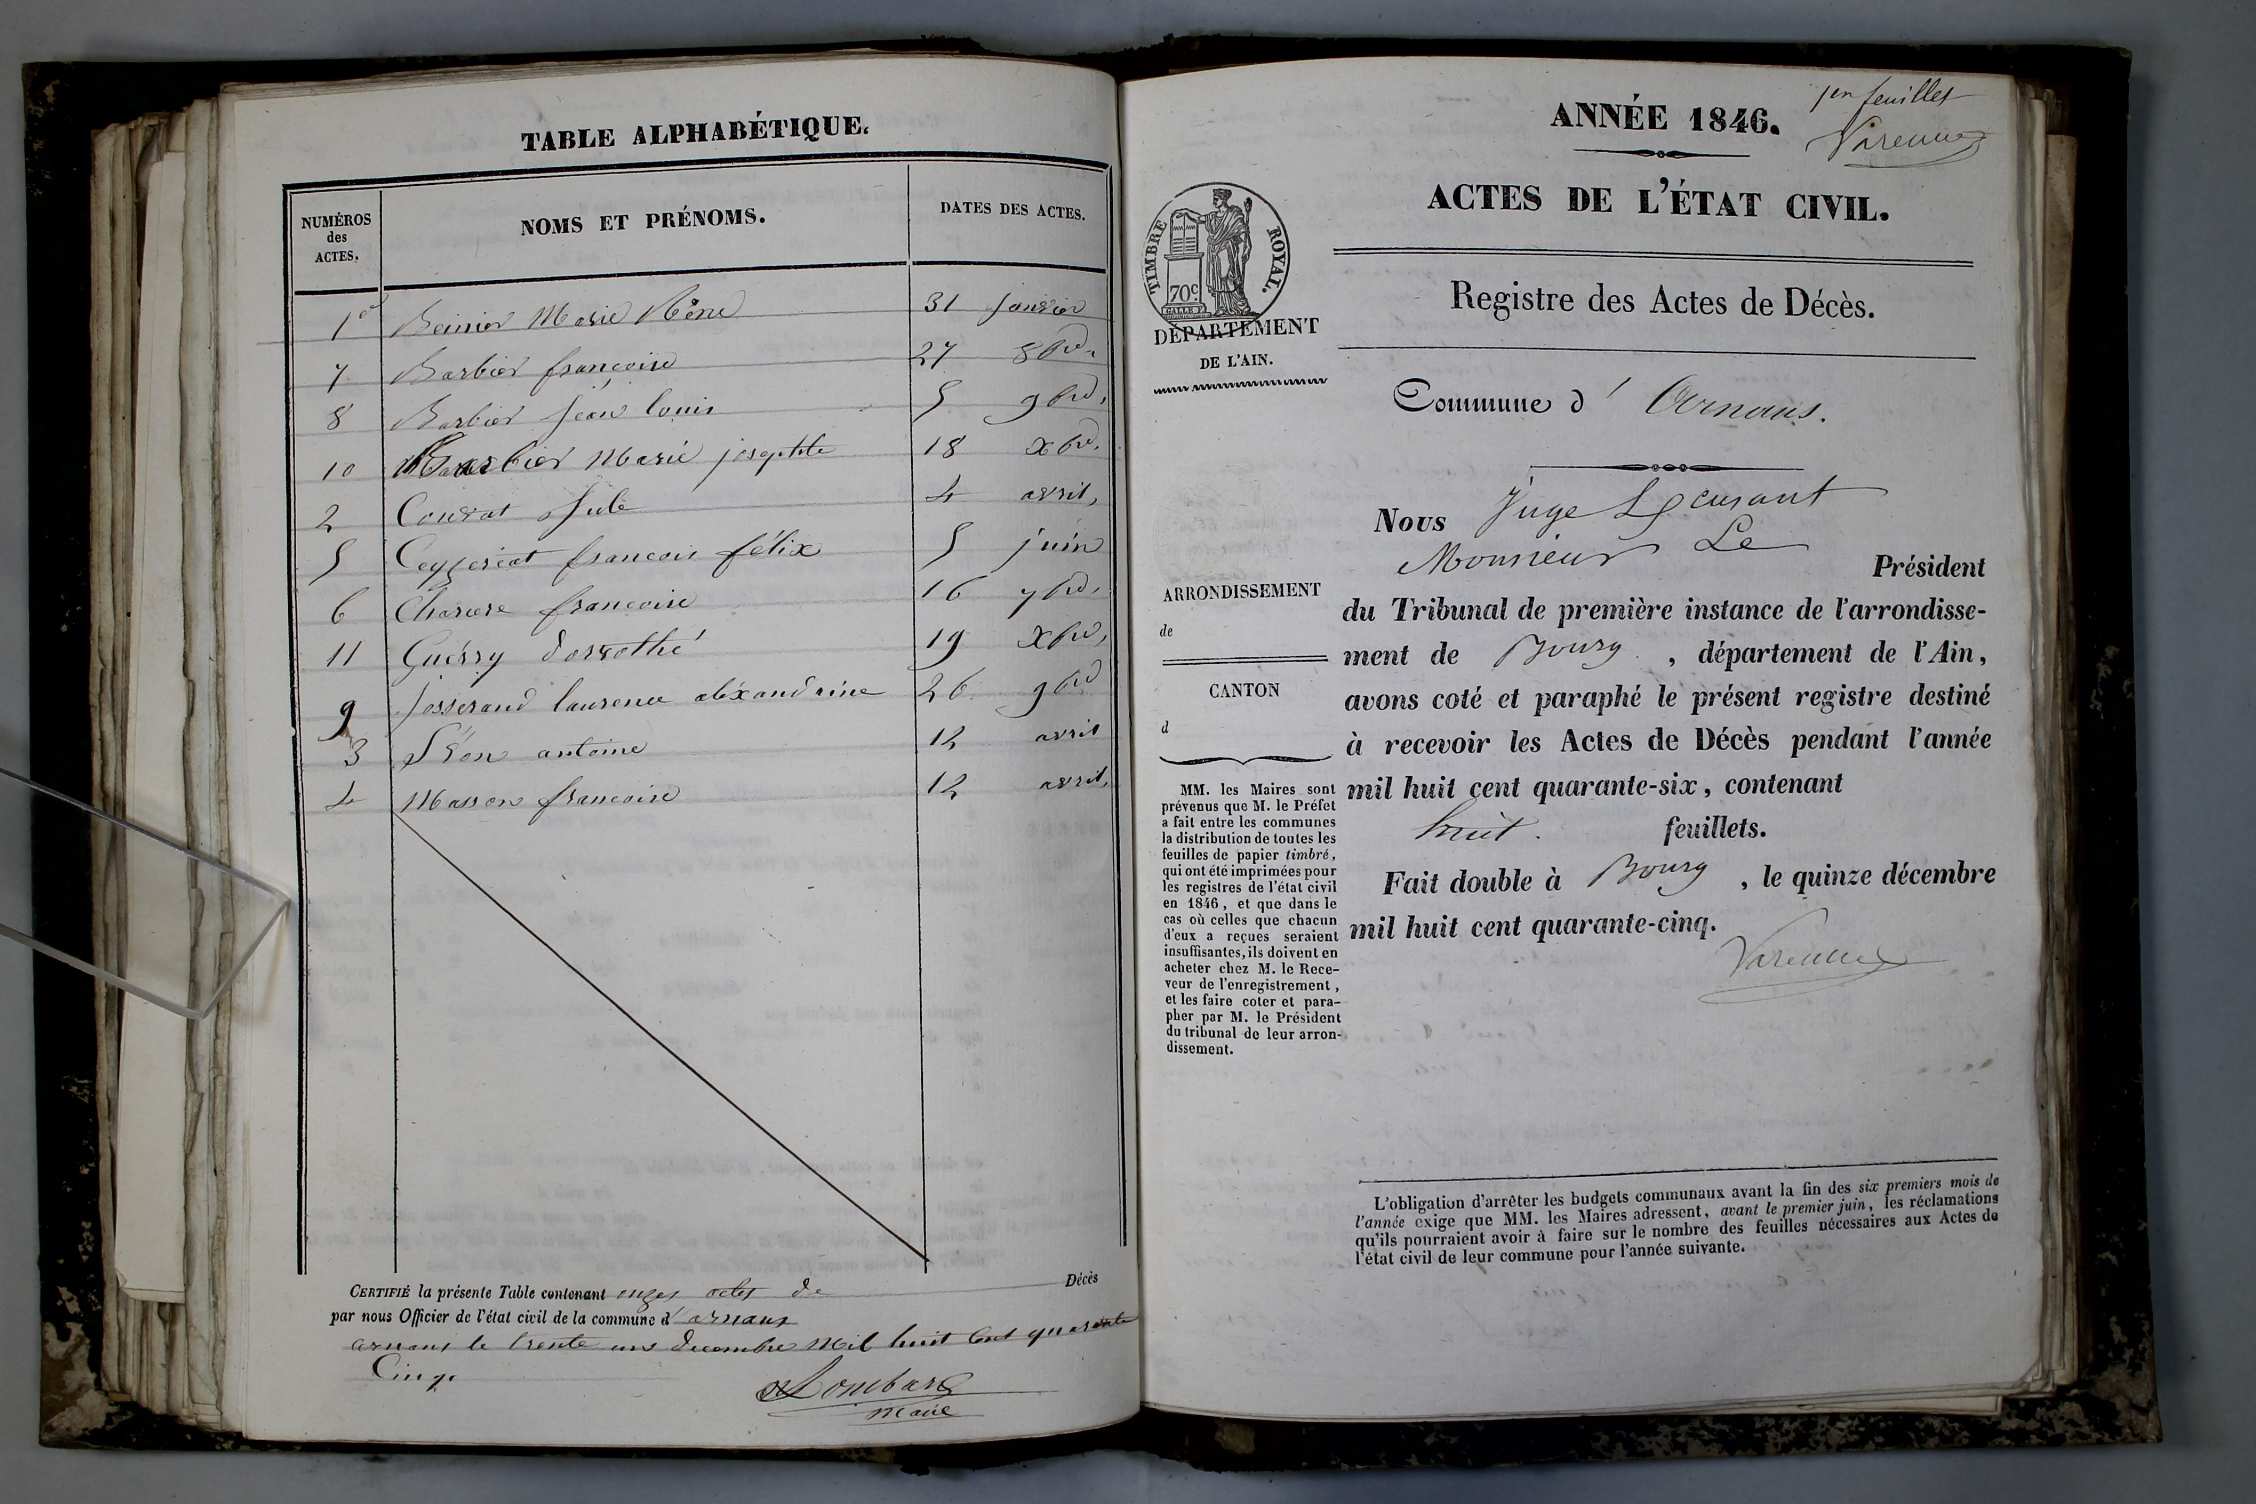 TABLE ALPHABÉTIQUE.
NUMÉROS des ACTES. NOMS ET PRÉNOMS. DATES DES ACTES.
1er Marie 31 janvier
7 Barbier françoise 27 8bre.
8 Barbier Jean louis 5 9bre,
10 Barbier Marie josephte 18 xbre.
2 Convat Jule 4 avril,
5 Ceyzeriat francois félix 5 juin
6 françoise 16 7bre,
11 Guérry dorrothé 19 xbre,
9 Josserand laurence aléxandrine 26 9bre
3 Léon antoine 12 avril
4 Masson francoise 12 avril,
CERTIFIÉ la présente Table contenant onzes actes de Décès
par nous Officier de l'état civil de la commune d'arnans
arnans le trente uns decembre Mil huit Cent quarante
Cinq.
Lombard
Maire
1er feuillet
Varenne
ANNÉE 1846.
ACTES DE L'ÉTAT CIVIL.
TIMBRE ROYAL.
70c
DÉPARTEMENT
DE L'AIN.
Registre des Actes de Décès.
Commune d' Arnans.
Nous Juge
Monsieur Le Président
du Tribunal de première instance de l'arrondisse-
ment de Bourg , département de l'Ain,
avons coté et paraphé le présent registre destiné
à recevoir les Actes de Décès pendant l'année
mil huit cent quarante-six, contenant
huit. feuillets.
Fait double à Bourg , le quinze décembre
mil huit cent quarante-cinq.
Varenne
ARRONDISSEMENT
de
CANTON
d
MM. les Maires sont
prévenus que M. le Préfet
a fait entre les communes
la distribution de toutes les
feuilles de papier timbré,
qui ont été imprimées pour
les registres de l'état civil
en 1846, et que dans le
cas où celles que chacun
d'eux a reçues seraient
insuffisantes, ils doivent en
acheter chez M. le Rece-
veur de l'enregistrement,
et les faire coter et para-
pher par M. le Président
du tribunal de leur arron-
dissement.
L'obligation d'arrêter les budgets communaux avant la fin des six premiers mois de
l'année exige que MM. les Maires adressent, avant le premier juin, les réclamations
qu'ils pourraient avoir à faire sur le nombre des feuilles nécessaires aux Actes de
l'état civil de leur commune pour l'année suivante.